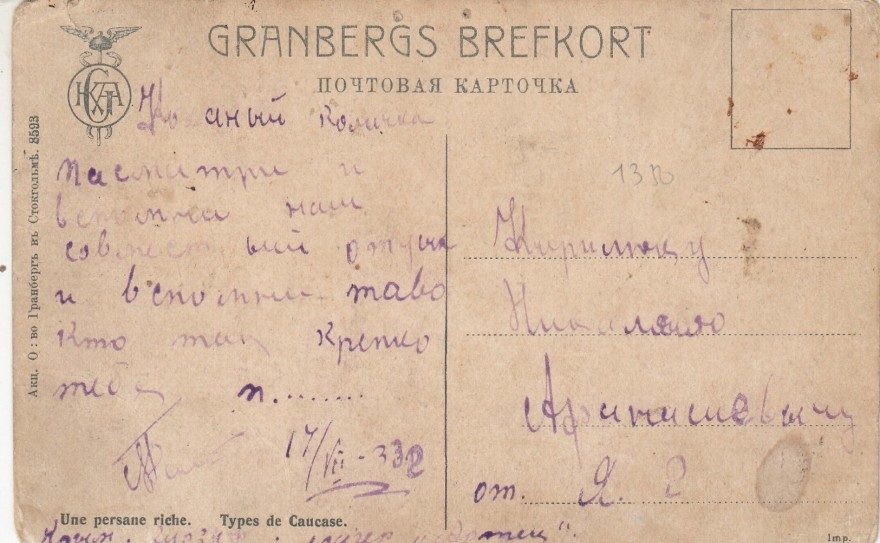 GRANBERGS BREFKORT
ПОЧТОВАЯ КАРТОЧКА
Акц. О:во Гранбергъ въ Стокгольмѣ. 8593
Коханый Количка
пасматри и
вспомни наш
совместный отпуск
и вспомни таво
кто так крепко
тебя п........
17/VII-33
13
Кирилюку
Николаю
от. Я.
Une persane riche. Types de Caucase.
Imp.